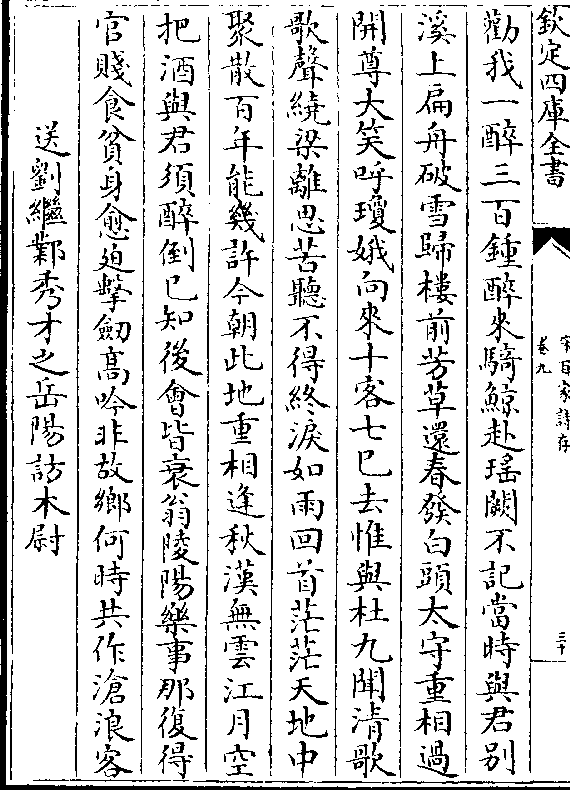 欽定四庫全書
宋百家詩存
卷九
三十
勸我一醉三百鍾醉來騎鯨赴瑶闕不記當時與君别
溪上扁舟破雪歸樓前芳草還春發白頭太守重相過
開尊大笑呼瓊娥向來十客七已去惟與杜九聞清歌
歌聲繞梁離思苦聽不得終淚如雨回首茫茫天地中
聚散百年能幾許今朝此地重相逢秋漢無雲江月空
把酒與君須醉倒已知後會皆衰翁陵陽樂事那復得
官賤食貧身愈廹擊劒高吟非故鄉何時共作滄浪客
送劉繼鄴秀才之岳陽訪木尉